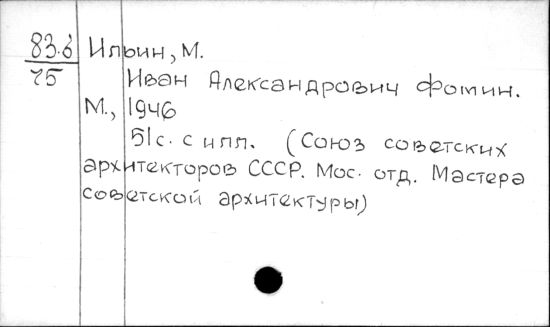 83.6 Ильин, М.
75 Иван Александрович Фомин.
М., 1946
51с. с илл. (Союз советских
архитекторов СССР. Мос. отд. Мастера
советской архитектуры)